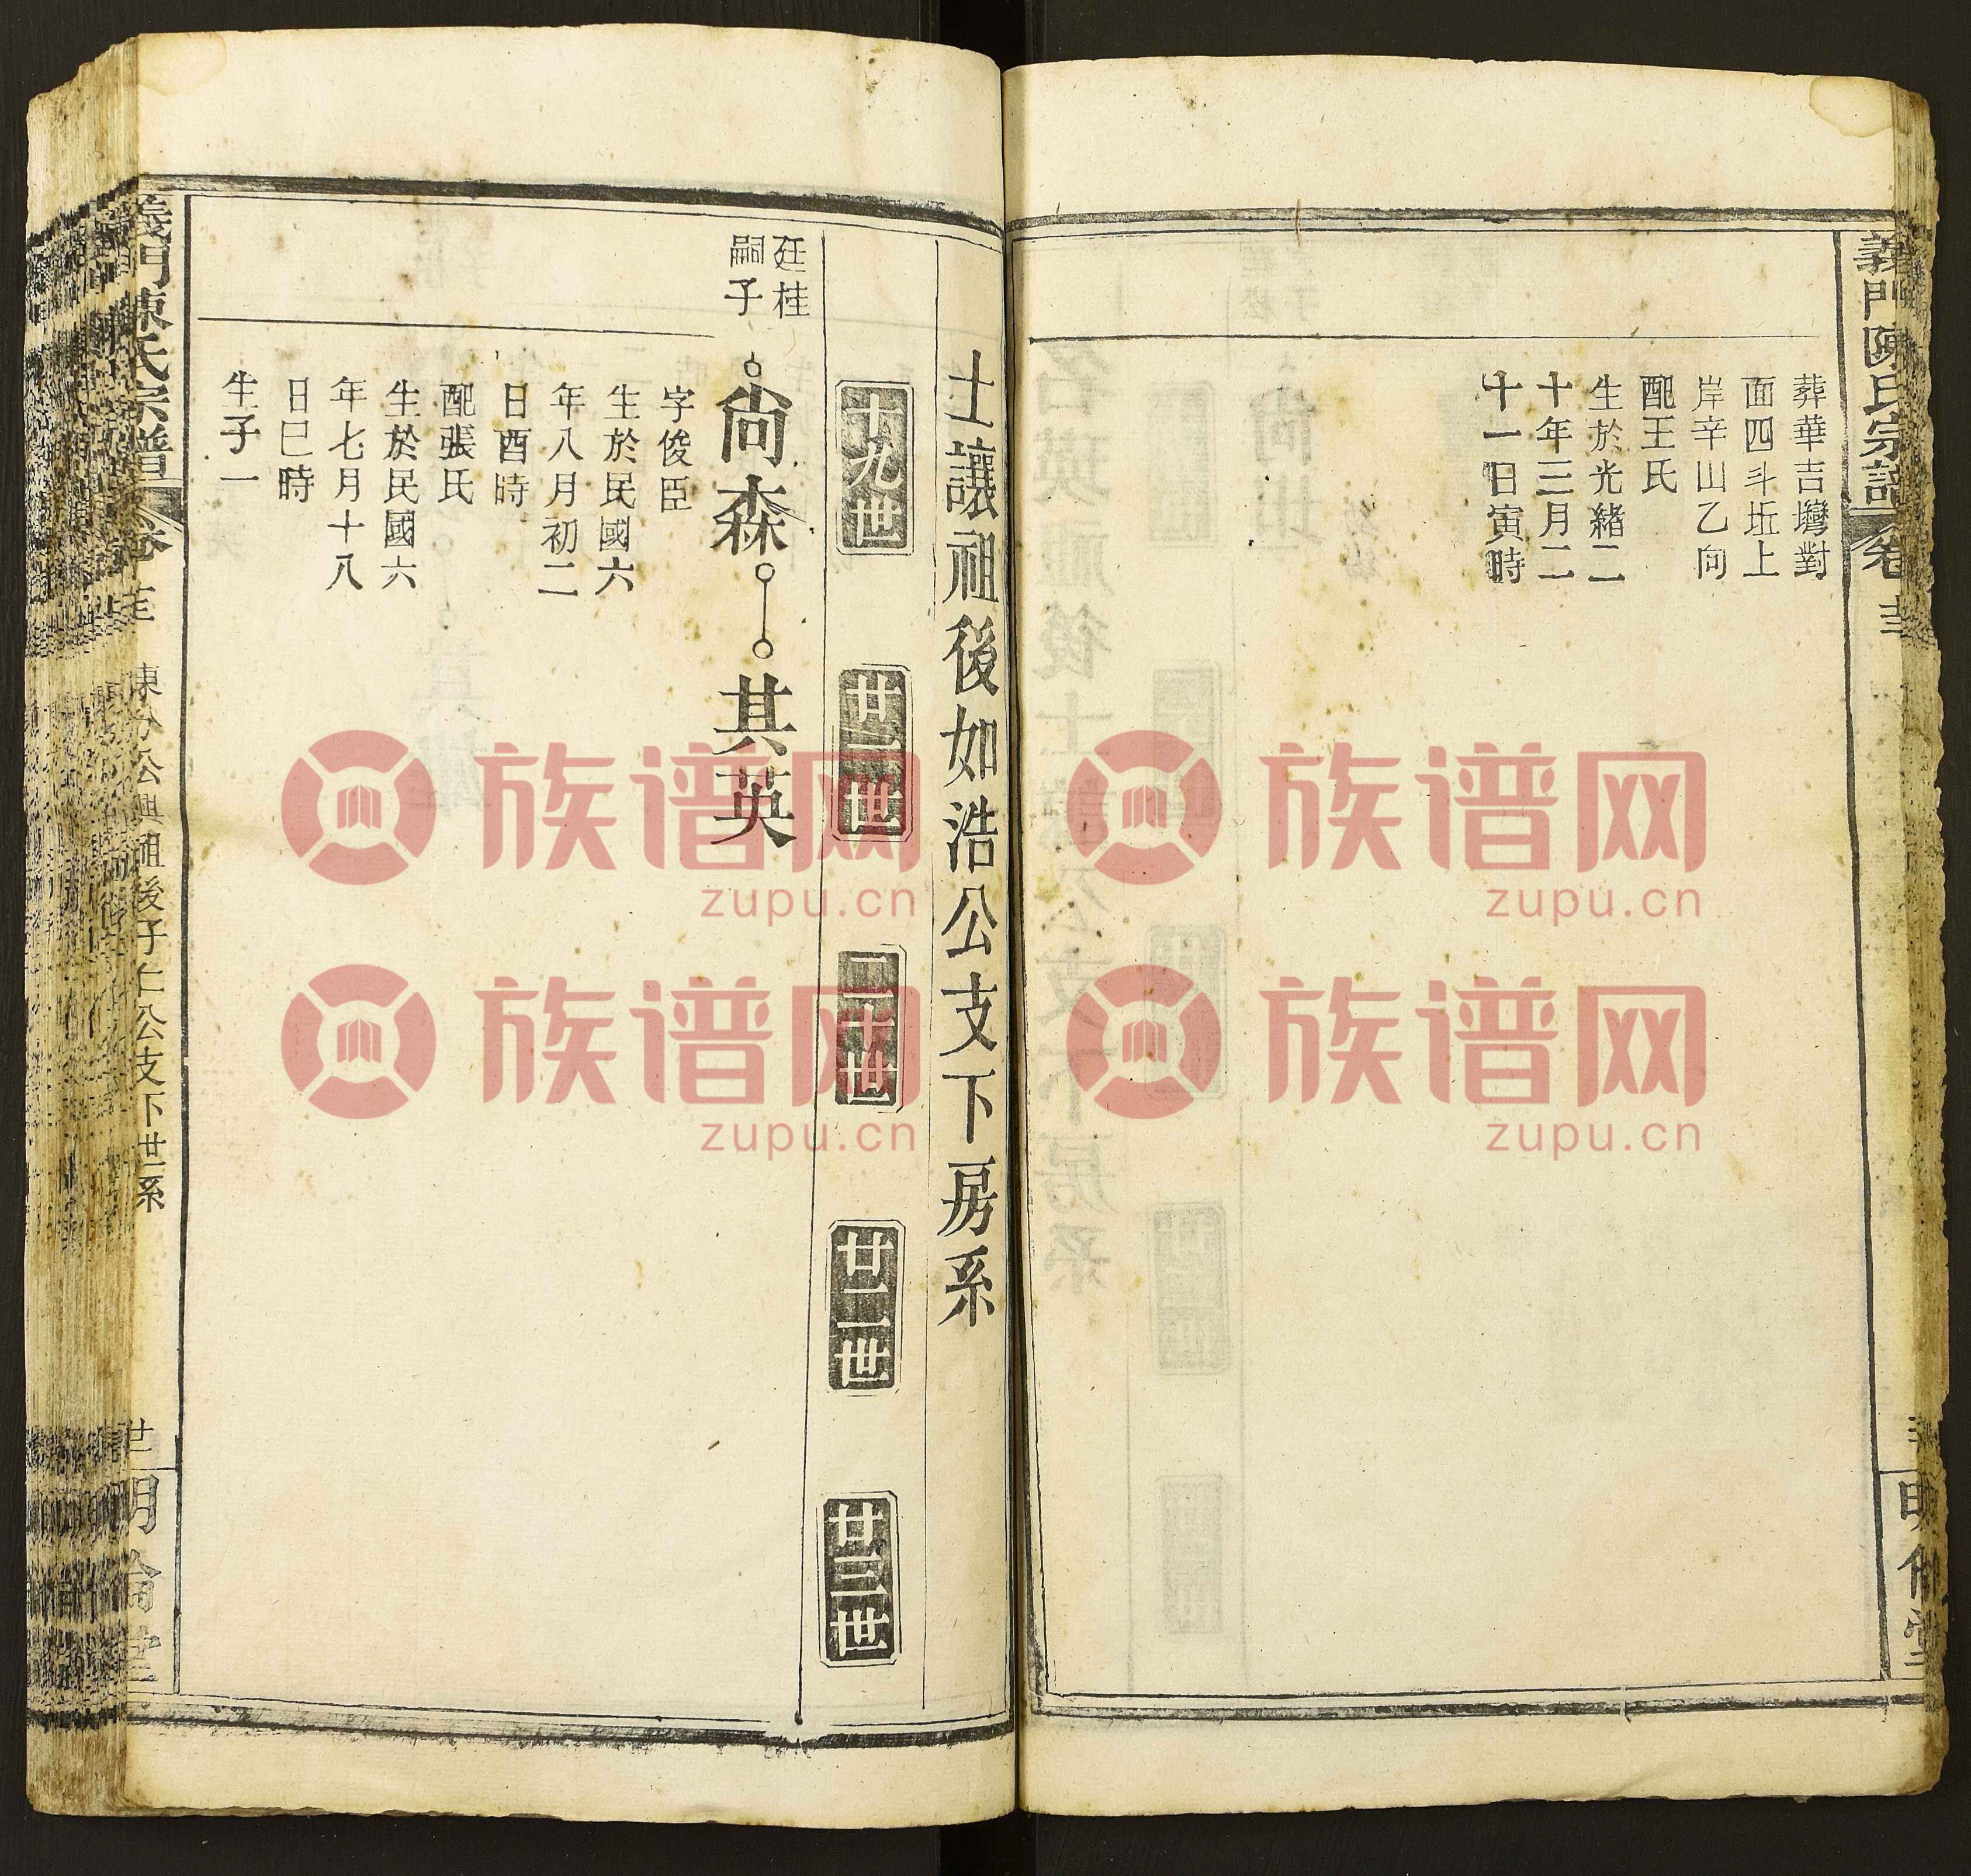 義門陳氏宗譜
葬華吉灣對
面四斗坵上
岸辛山乙向
配王氏
生於光緒二
十年三月二
十一日寅時
士讓祖後如浩公支下房系
十九世
二十世
廿一世
廿二世
廿三世
廷桂
嗣子
尚森
其英
字俊臣
生於民國六
年八月初二
日酉時
配張氏
生於民國六
年七月十八
日巳時
生子一
義門陳氏宗譜
公興祖後子仁公支下世系
明倫堂
族谱网
zupu.cn
族谱网
zupu.cn
族谱网
zupu.cn
族谱网
zupu.cn